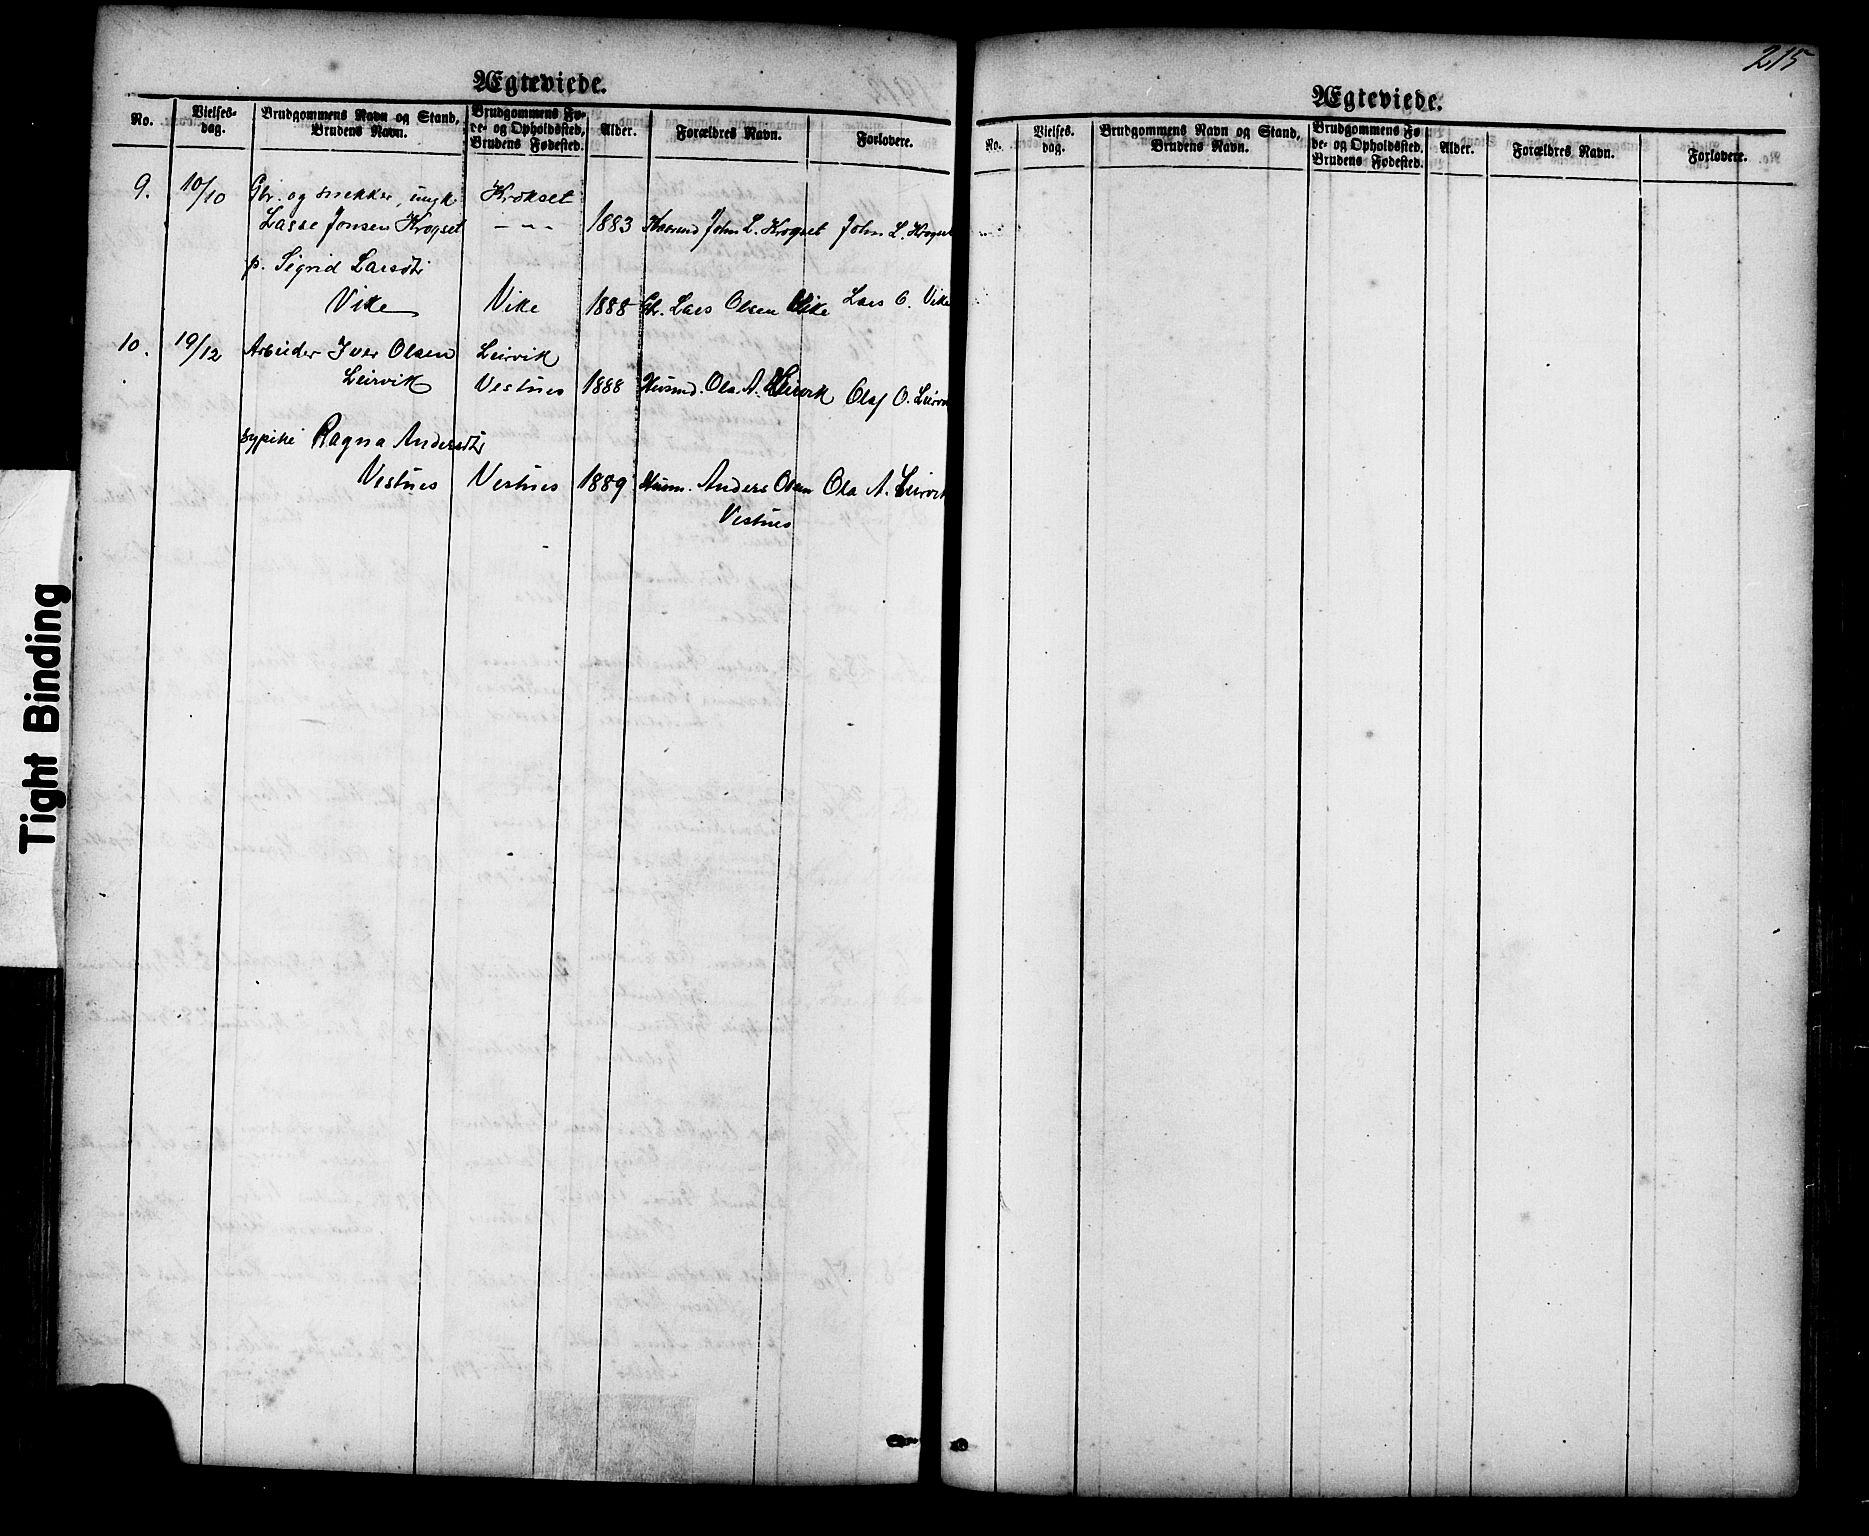 215
Ægteviede.
No.
Vielses-
dag.
Brudgommens Navn og Stand,
Brudens Navn.
Brudgommens Fø-
de- og Opholdssted,
Brudens Fødested.
Alder.
Forældres Navn.
Forlovere.
9. 10/10 Gbr. og snekker, ungk Krokset
Lasse Jonsen Krogset — " — 1883 John L. Krogset John L. Krogset
p. Sigrid Larsdtr
Vike Vike 1888 Gbr. Lars Olsen Vike Lars O. Vike
10. 19/12 Arbeider Iver Olsen Leirvik
Leirvik Vestnes 1888 Husmd. Ola A. Leirvik Olaf O. Leirvik
sypike Ragna Andersdtr
Vestnes Vestnes 1889 Husm. Anders Olsen Ola A. Leirvik
Vestnes
Ægteviede.
No.
Vielses-
dag.
Brudgommens Navn og Stand,
Brudens Navn.
Brudgommens Fø
de- og Opholdssted,
Brudens Fødested.
Alder.
Forældres Navn.
Forlovere.
Tight Binding